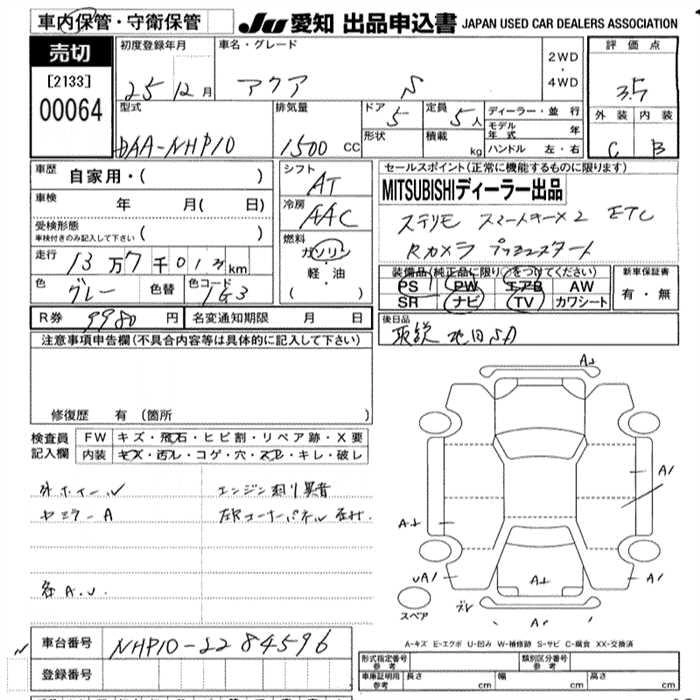 車内保管・守衛保管 JU 愛知 出品申込書 JAPAN USED CAR DEALERS ASSOCIATION
売切
[2133]
00064
初度登録年月 車名・グレード 評価点
25 12月 アクア S 2WD・4WD 3.5
型式 排気量 ドア 5 定員 5人 ディーラー・並行 外装 内装
DAA-NHP10 1500 CC 形状 積載 kg モデル年式 年 C B
ハンドル 左・右
車歴 自家用・( ) シフト AT セールスポイント(正常に機能するものに限ります)
車検 年 月( 日) 冷房 AAC MITSUBISHIディーラー出品
受検形態 ( ) ステリモ スマートキー×2 ETC
車検付きのみ記入して下さい 燃料 ガソリン Rカメラ プッシュスタート
走行 13万7千013km 軽・油
色 グレー 色替 色コード 1G3 ( )
装備品(純正品に限り○をつけてください) 新車保証書
PS PW エアB AW 有・無
SR ナビ TV カワシート
R券 9980 円 名変通知期限 月 日 後日品
取説
注意事項申告欄(不具合内容等は具体的に記入して下さい)
修復歴 有 (箇所 )
検査員 FW キズ・飛石・ヒビ割・リペア跡・X要
記入欄 内装 キズ・汚レ・コゲ・穴・スレ・キレ・破レ
外ホイール エンジン
ヤミラーA 左Rコーナーパネル
各A.U.
A1
A1
UA1
A1
スペア
車台番号 NHP10-2284596
登録番号
A-キズ E-エクボ U-凹み W-補修跡 S-サビ C-腐食 XX-交換済
形式指定番号 参考 類別区分番号 参考
車庫証明用 参考 長さ cm 幅 cm 高さ cm